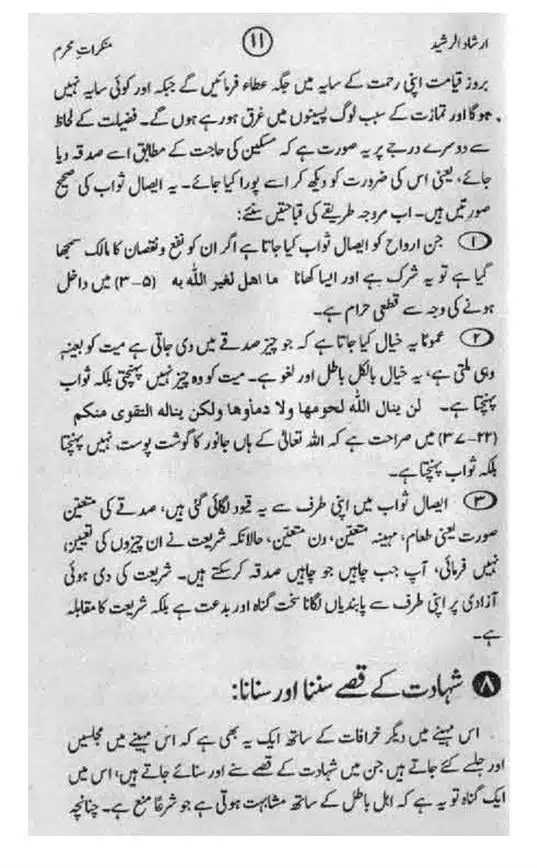 ارشاد الرشید ۱۱ منکراتِ محرم
بروز قیامت اپنی رحمت کے سایہ میں جگہ عطاء فرمائیں گے جبکہ اور کوئی سایہ نہیں
ہوگا اور تمازت کے سبب لوگ پسینوں میں غرق ہورہے ہوں گے۔ فضیلت کے لحاظ
سے دوسرے درجے پر یہ صورت ہے کہ مسکین کی حاجت کے مطابق اسے صدقہ دیا
جائے، یعنی اس کی ضرورت کو دیکھ کر اسے پورا کیا جائے۔ یہ ایصال ثواب کی صحیح
صورتیں ہیں۔ اب مروجہ طریقے کی قباحتیں سنئے:
۱ جن ارواح کو ایصال ثواب کیا جاتا ہے اگر ان کو نفع و نقصان کا مالک سمجھا
گیا ہے تو یہ شرک ہے اور ایسا کھانا ما اهل لغیر الله به (۵-۳) میں داخل
ہونے کی وجہ سے قطعی حرام ہے۔
۲ عموماً یہ خیال کیا جاتا ہے کہ جو چیز صدقے میں دی جاتی ہے میت کو بعینہ
وہی ملتی ہے، یہ خیال بالکل باطل اور لغو ہے۔ میت کو وہ چیز نہیں پہنچتی بلکہ ثواب
پہنچتا ہے۔ لن ینال الله لحومها ولا دماؤها ولکن یناله التقوی منکم
(۲۲-۳۷) میں صراحت ہے کہ اللہ تعالیٰ کے ہاں جانور کا گوشت پوست نہیں پہنچتا
بلکہ ثواب پہنچتا ہے۔
۳ ایصال ثواب میں اپنی طرف سے یہ قیود لگائی گئی ہیں، صدقے کی متعین
صورت یعنی طعام، مہینہ متعین، دن متعین، حالانکہ شریعت نے ان چیزوں کی تعیین
نہیں فرمائی، آپ جب چاہیں جو چاہیں صدقہ کرسکتے ہیں۔ شریعت کی دی ہوئی
آزادی پر اپنی طرف سے پابندیاں لگانا سخت گناہ اور بدعت ہے بلکہ شریعت کا مقابلہ
ہے۔
۸ شہادت کے قصے سننا اور سنانا:
اس مہینے میں دیگر خرافات کے ساتھ ایک یہ بھی ہے کہ اس مہینے میں مجلسیں
اور جلسے کئے جاتے ہیں جن میں شہادت کے قصے سنے اور سنائے جاتے ہیں، اس میں
ایک گناہ تو یہ ہے کہ اہل باطل کے ساتھ مشابہت ہوتی ہے جو شرعاً منع ہے۔ چنانچہ